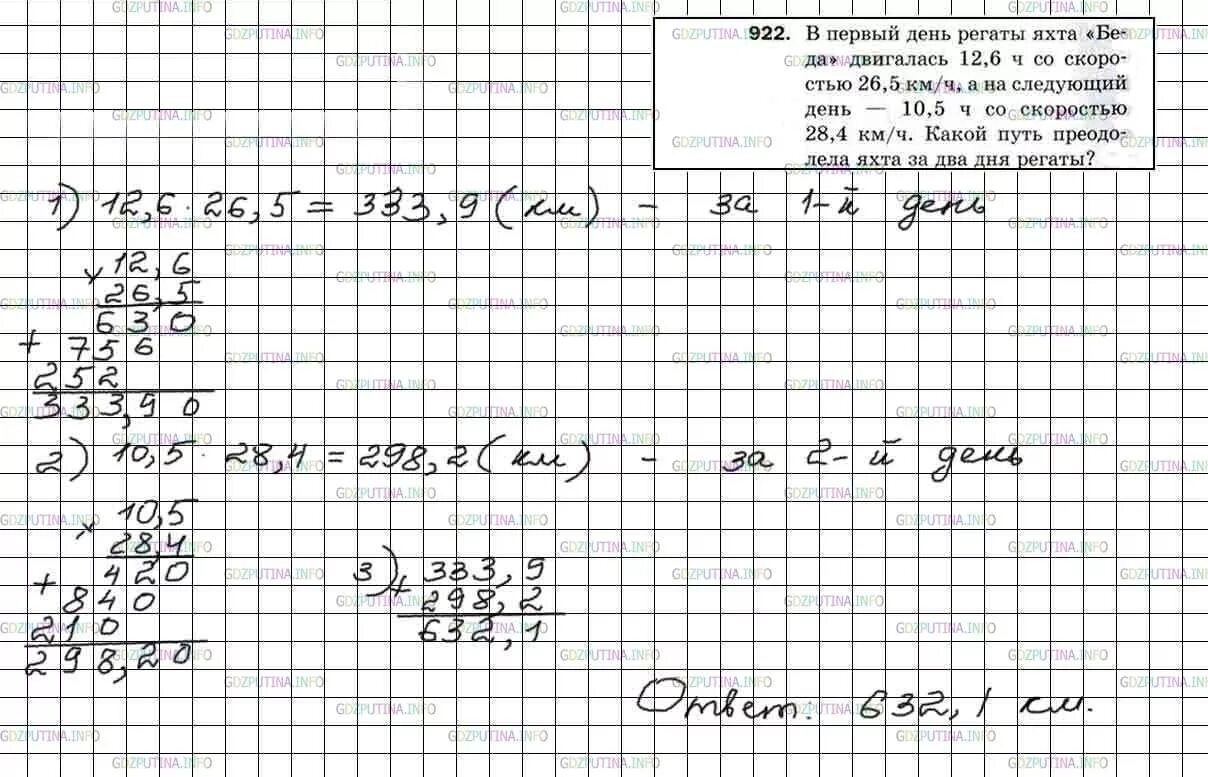 922. В первый день регаты яхта «Бе-
да» двигалась 12,6 ч со скоро-
стью 26,5 км/ч, а на следующий
день — 10,5 ч со скоростью
28,4 км/ч. Какой путь преодо-
лела яхта за два дня регаты?
1) 12,6 · 26,5 = 333,9 (км) - за 1-й день
× 12,6
26,5
630
+ 756
252
333,90
2) 10,5 · 28,4 = 298,2 (км) - за 2-й день
× 10,5
28,4
420
+ 840
210
298,20
3) + 333,9
298,2
632,1
Ответ: 632,1 км.
GDZPUTINA.INFO